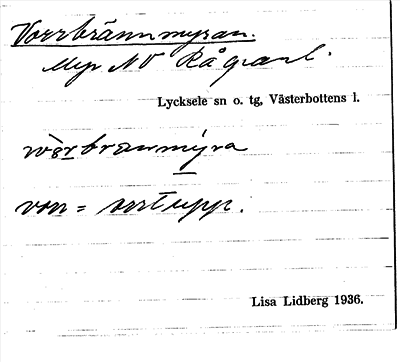 Vorrbrännmyran.
Myr NV Rågoarl.
Lycksele sn o. tg, Västerbottens l.
wòrbranmýra
vorr = orrtupp.
Lisa Lidberg 1936.